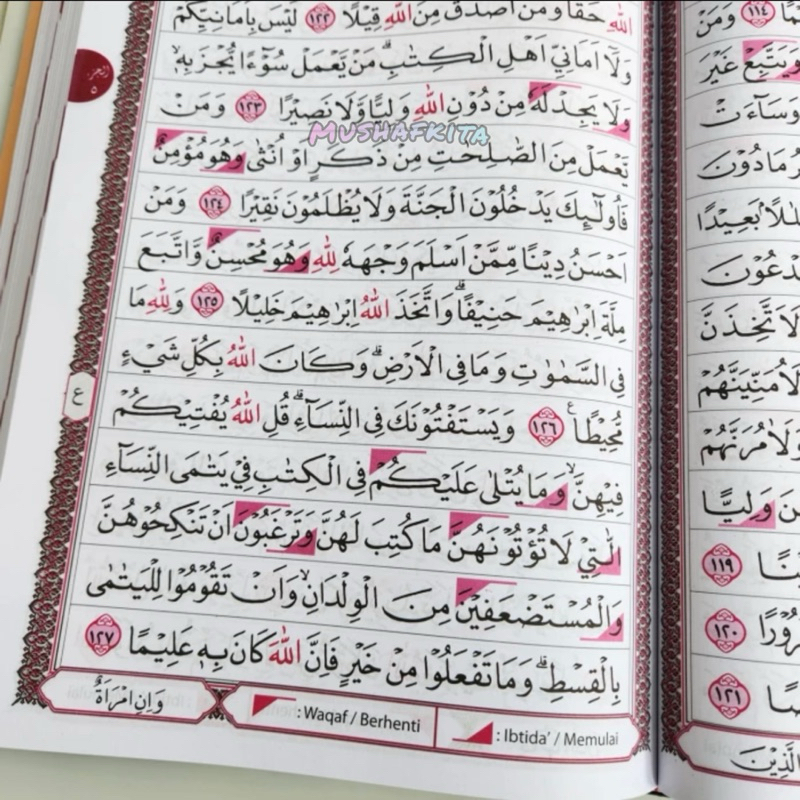 اللّٰهِ حَقًّا وَمَنْ اَصْدَقُ مِنَ اللّٰهِ قِيْلًا ١٢٢ لَيْسَ بِاَمَانِيِّكُمْ
وَلَآ اَمَانِيِّ اَهْلِ الْكِتٰبِۗ مَنْ يَّعْمَلْ سُوْۤءًا يُّجْزَ بِهٖۙ
وَلَا يَجِدْ لَهٗ مِنْ دُوْنِ اللّٰهِ وَلِيًّا وَّلَا نَصِيْرًا ١٢٣ وَمَنْ
MUSHAFKITA
يَّعْمَلْ مِنَ الصّٰلِحٰتِ مِنْ ذَكَرٍ اَوْ اُنْثٰى وَهُوَ مُؤْمِنٌ
فَاُولٰۤىِٕكَ يَدْخُلُوْنَ الْجَنَّةَ وَلَا يُظْلَمُوْنَ نَقِيْرًا ١٢٤ وَمَنْ
اَحْسَنُ دِيْنًا مِّمَّنْ اَسْلَمَ وَجْهَهٗ لِلّٰهِ وَهُوَ مُحْسِنٌ وَّاتَّبَعَ
مِلَّةَ اِبْرٰهِيْمَ حَنِيْفًاۗ وَاتَّخَذَ اللّٰهُ اِبْرٰهِيْمَ خَلِيْلًا ١٢٥ وَلِلّٰهِ مَا
فِى السَّمٰوٰتِ وَمَا فِى الْاَرْضِۗ وَكَانَ اللّٰهُ بِكُلِّ شَيْءٍ
مُّحِيْطًا ١٢٦ وَيَسْتَفْتُوْنَكَ فِى النِّسَاۤءِۗ قُلِ اللّٰهُ يُفْتِيْكُمْ
فِيْهِنَّۙ وَمَا يُتْلٰى عَلَيْكُمْ فِى الْكِتٰبِ فِيْ يَتٰمَى النِّسَاۤءِ
الّٰتِيْ لَا تُؤْتُوْنَهُنَّ مَا كُتِبَ لَهُنَّ وَتَرْغَبُوْنَ اَنْ تَنْكِحُوْهُنَّ
وَالْمُسْتَضْعَفِيْنَ مِنَ الْوِلْدَانِۙ وَاَنْ تَقُوْمُوْا لِلْيَتٰمٰى
بِالْقِسْطِۗ وَمَا تَفْعَلُوْا مِنْ خَيْرٍ فَاِنَّ اللّٰهَ كَانَ بِهٖ عَلِيْمًا ١٢٧
وَاِنِ امْرَاَةٌ
: Waqaf / Berhenti
: Ibtida' / Memulai
الجزء ٥
ع
١١٤ وَمَنْ
وَيَتَّبِعْ غَيْرَ
وَسَاۤءَتْ
مَا دُوْنَ
بَعِيْدًا
يَدْعُوْنَ
لَاَتَّخِذَنَّ
وَلَاُمَنِّيَنَّهُمْ
وَلَاٰمُرَنَّهُمْ
وَلِيًّا
١١٩
١٢٠
١٢١
وَالَّذِيْنَ